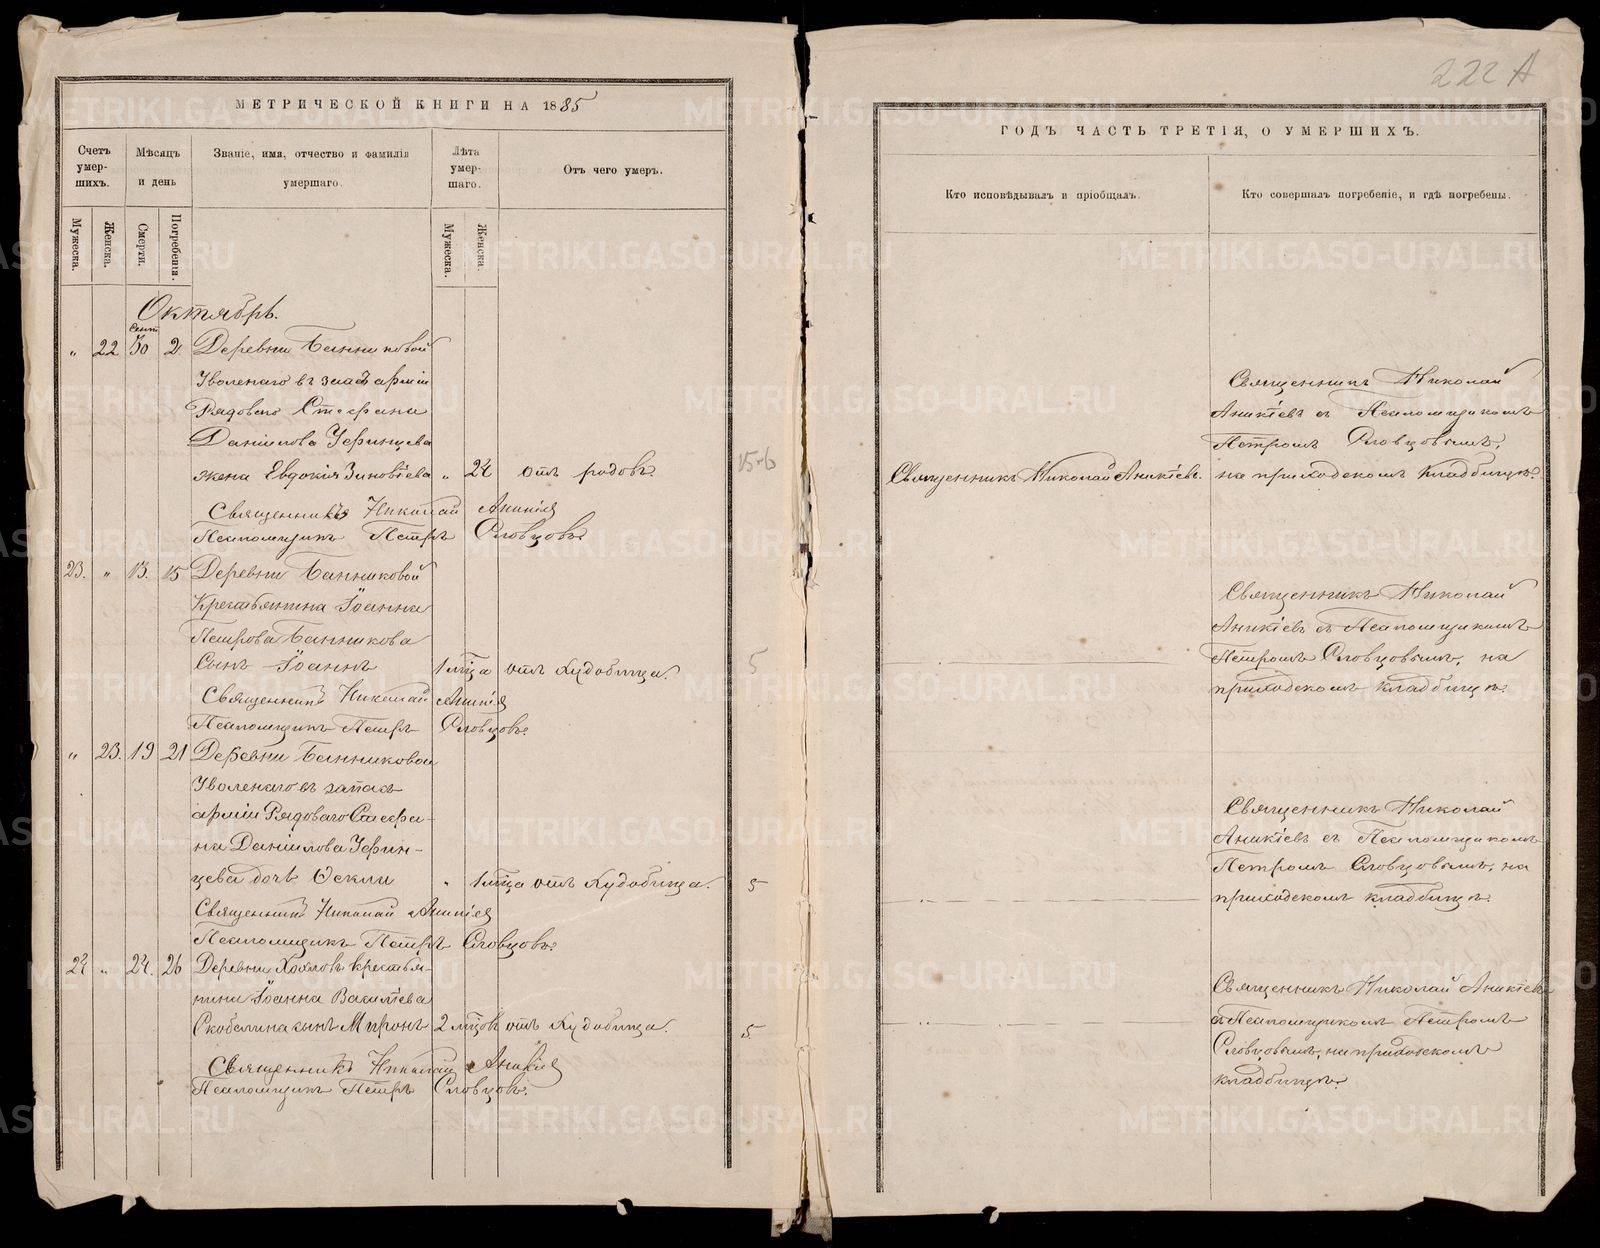 222 А
МЕТРИЧЕСКОЙ КНИГИ НА 1885
Счетъ умер-шихъ.
Мѣсяцъ и день
Званіе, имя, отчество и фамилія умершаго.
Лѣта умер-шаго.
Отъ чего умеръ.
Мужеска.
Женска.
Смерти.
Погребенія.
Мужеска.
Женска.
Октябрь.
Сент
" 22 30 2. Деревни Банниковой
Уволенаго въ запас арміи
Рядового Стефана
Даніилова Уфинцева
жена Евдокія Зиновіева " 24 отъ родовъ.
Священникъ Николай Аникіев
Псаломщикъ Петръ Словцовъ.
23. " 13. 15 Деревни Банниковой
Крестьянина Іоанна
Петрова Банникова
Сынъ Іоаннъ 1 мѣсца отъ худобища. 5
Священникъ Николай Аникіев
Псаломщикъ Петръ Словцовъ.
" 23. 19 21 Деревни Банниковой
Уволенаго въ запасъ
арміи Рядоваго Стефа-
на Даніилова Уфин-
цева дочь Фекли " 1 мѣсца отъ худобища. 5
Священник Николай Аникіев
Псаломщикъ Петръ Словцовъ.
24 " 24. 26 Деревни Хохловъ крестья-
нина Іоанна Василіева
Скобелина сынъ Миронъ 2 мѣсцов отъ худобища. 5.
Священникъ Николай Аникіев
Псаломщикъ Петръ Словцовъ.
ГОДЪ ЧАСТЬ ТРЕТІЯ, О УМЕРШИХЪ.
Кто исповѣдывалъ и пріобщалъ.
Кто совершалъ погребеніе, и гдѣ погребены.
Священникъ Николай
Аникіевъ съ Псаломщикомъ
Петромъ Словцовымъ,
Священникъ Николай Аникіевъ. на приходскомъ кладбищѣ.
Священникъ Николай
Аникіевъ съ Псаломщикомъ
Петромъ Словцовымъ, на
приходскомъ кладбищѣ.
Священникъ Николай
Аникіевъ съ Псаломщикомъ
Петромъ Словцовымъ, на
приходскомъ кладбищѣ.
Священникъ Николай Аникіевъ
съ Псаломщикомъ Петромъ
Словцовымъ, на приходскомъ
кладбищѣ.
METRIKI.GASO-URAL.RU